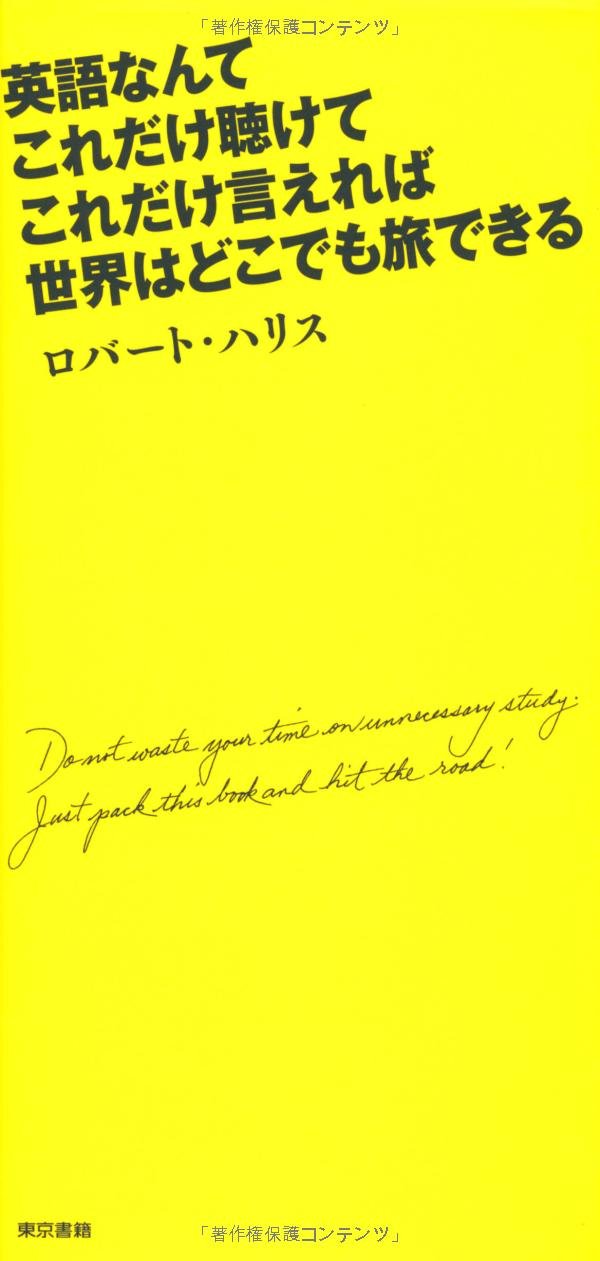 「著作権保護コンテンツ」
英語なんて
これだけ聴けて
これだけ言えれば
世界はどこでも旅できる
ロバート・ハリス
Do not waste your time on unnecessary study.
Just pack this book and hit the road!
東京書籍
「著作権保護コンテンツ」